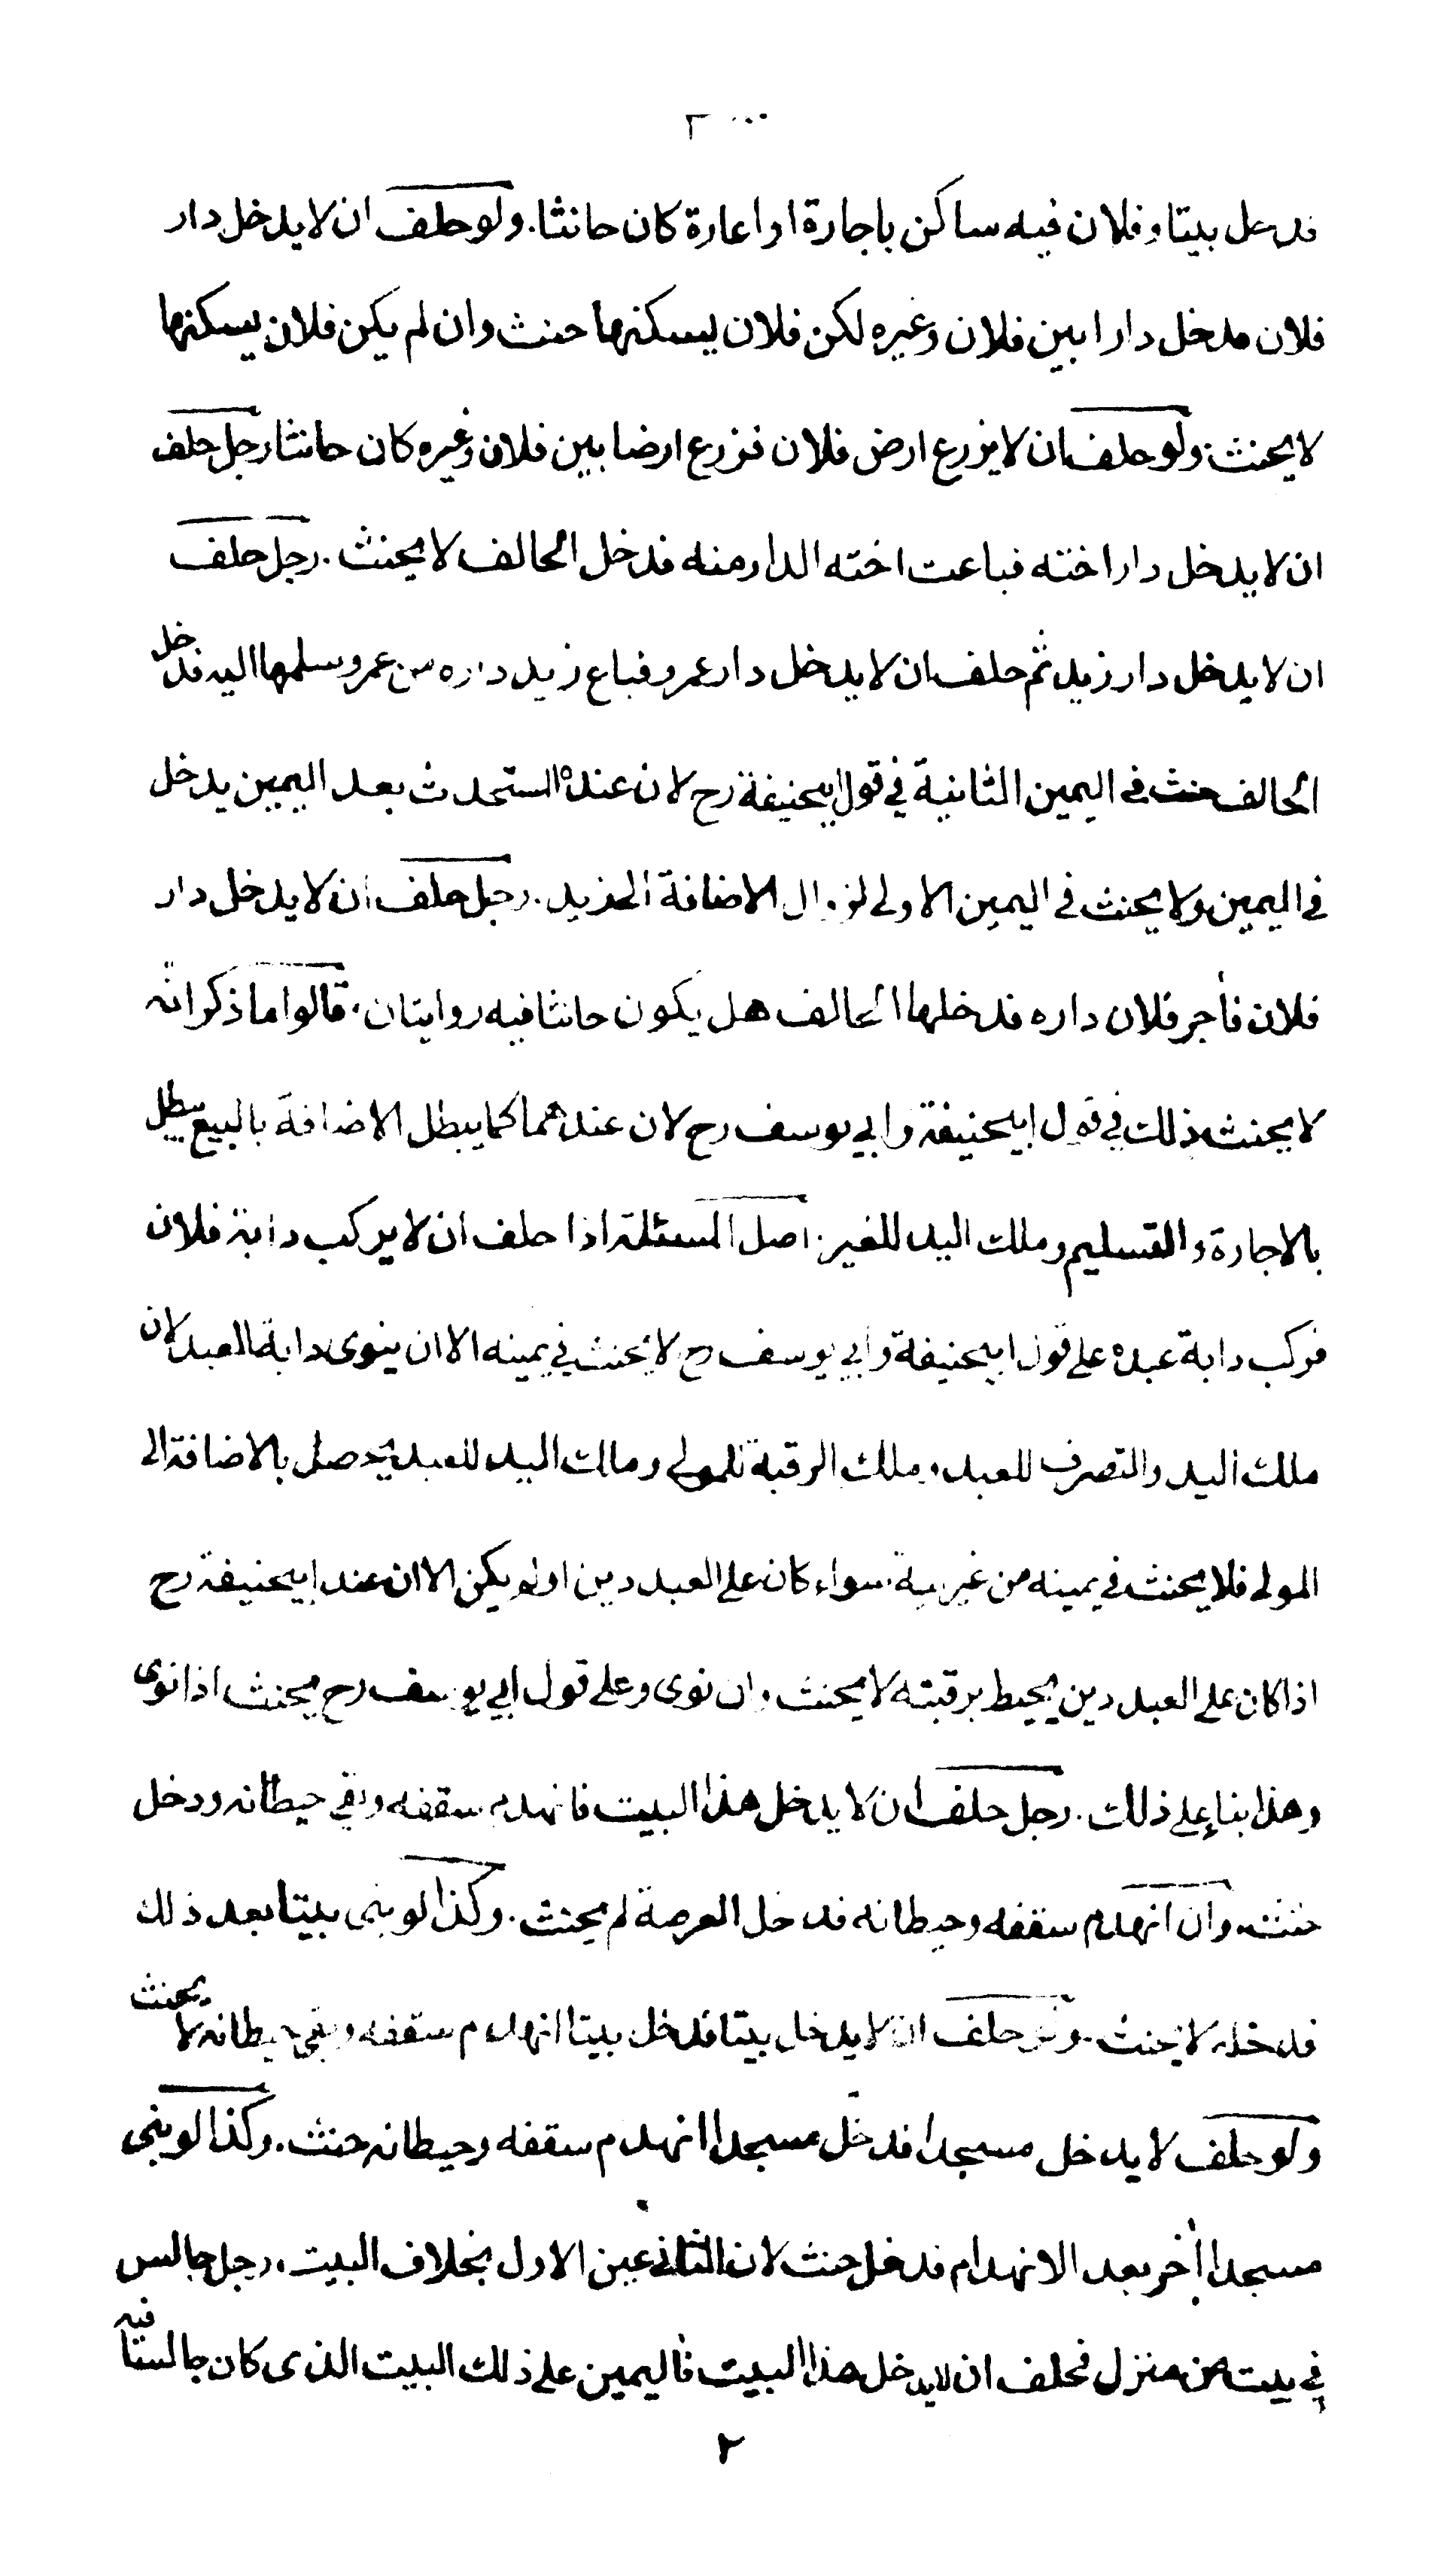 فدخل بيتا وفلان فيه ساكن باجارة او اعارة كان حانثا. ولو حلف ان لا يدخل دار
فلان فدخل دارا بين فلان وغيره لكن فلان يسكنها حنث وان لم يكن فلان يسكنها
لا يحنث. ولو حلف ان لا يزرع ارض فلان فزرع ارضا بين فلان وغيره كان حانثا رجل حلف
ان لا يدخل دار اخته فباعت اخته الدار منه فدخل الحالف لا يحنث. رجل حلف
ان لا يدخل دار زيد ثم حلف ان لا يدخل دار عمرو فباع زيد داره من عمرو وسلمها اليه فدخل
الحالف حنث في اليمين الثانية في قول ابيحنيفة رح لان عنده المستحدث بعد اليمين يدخل
في اليمين ولا يحنث في اليمين الاولى لزوال الاضافة الى زيد. رجل حلف ان لا يدخل دار
فلان فأجر فلان داره فدخلها الحالف هل يكون حانثا فيه روايتان. قالوا ما ذكر انه
لا يحنث ذلك في قول ابيحنيفة وابي يوسف رح لان عندهما كما يبطل الاضافة بالبيع يبطل
بالاجارة والتسليم وملك اليد للغير. اصل المسئلة اذا حلف ان لا يركب دابة فلان
فركب دابة عبده على قول ابيحنيفة وابي يوسف رح لا يحنث في يمينه الا ان ينوى دابة العبد لان
ملك اليد والتصرف للعبد وملك الرقبة للمولى وملك اليد للعبد يحصل بالاضافة الى
المولى فلا يحنث في يمينه من غير نية. سواء كان على العبد دين او لم يكن الا ان عند ابيحنيفة رح
اذا كان على العبد دين يحيط برقبته لا يحنث وان نوى وعلى قول ابي يوسف رح يحنث اذا نوى
وهذا بناء على ذلك. رجل حلف ان لا يدخل هذا البيت فانهدم سقفه وبقي حيطانه ودخل
حنث. وان انهدم سقفه وحيطانه فدخل العرصة لم يحنث. وكذا لو بنى بيتا بعد ذلك
فدخله لا يحنث. ولو حلف ان لا يدخل بيتا فدخل بيتا انهدم سقفه وبقي حيطانه لا يحنث
ولو حلف لا يدخل مسجدا فدخل مسجدا انهدم سقفه وحيطانه حنث. وكذا لو بنى
مسجدا أخر بعد الانهدام فدخل حنث لان الثاني عين الاول بخلاف البيت. رجل جالس
في بيت من منزل فحلف ان لا يدخل هذا البيت فاليمين على ذلك البيت الذى كان جالسا فيه
٢